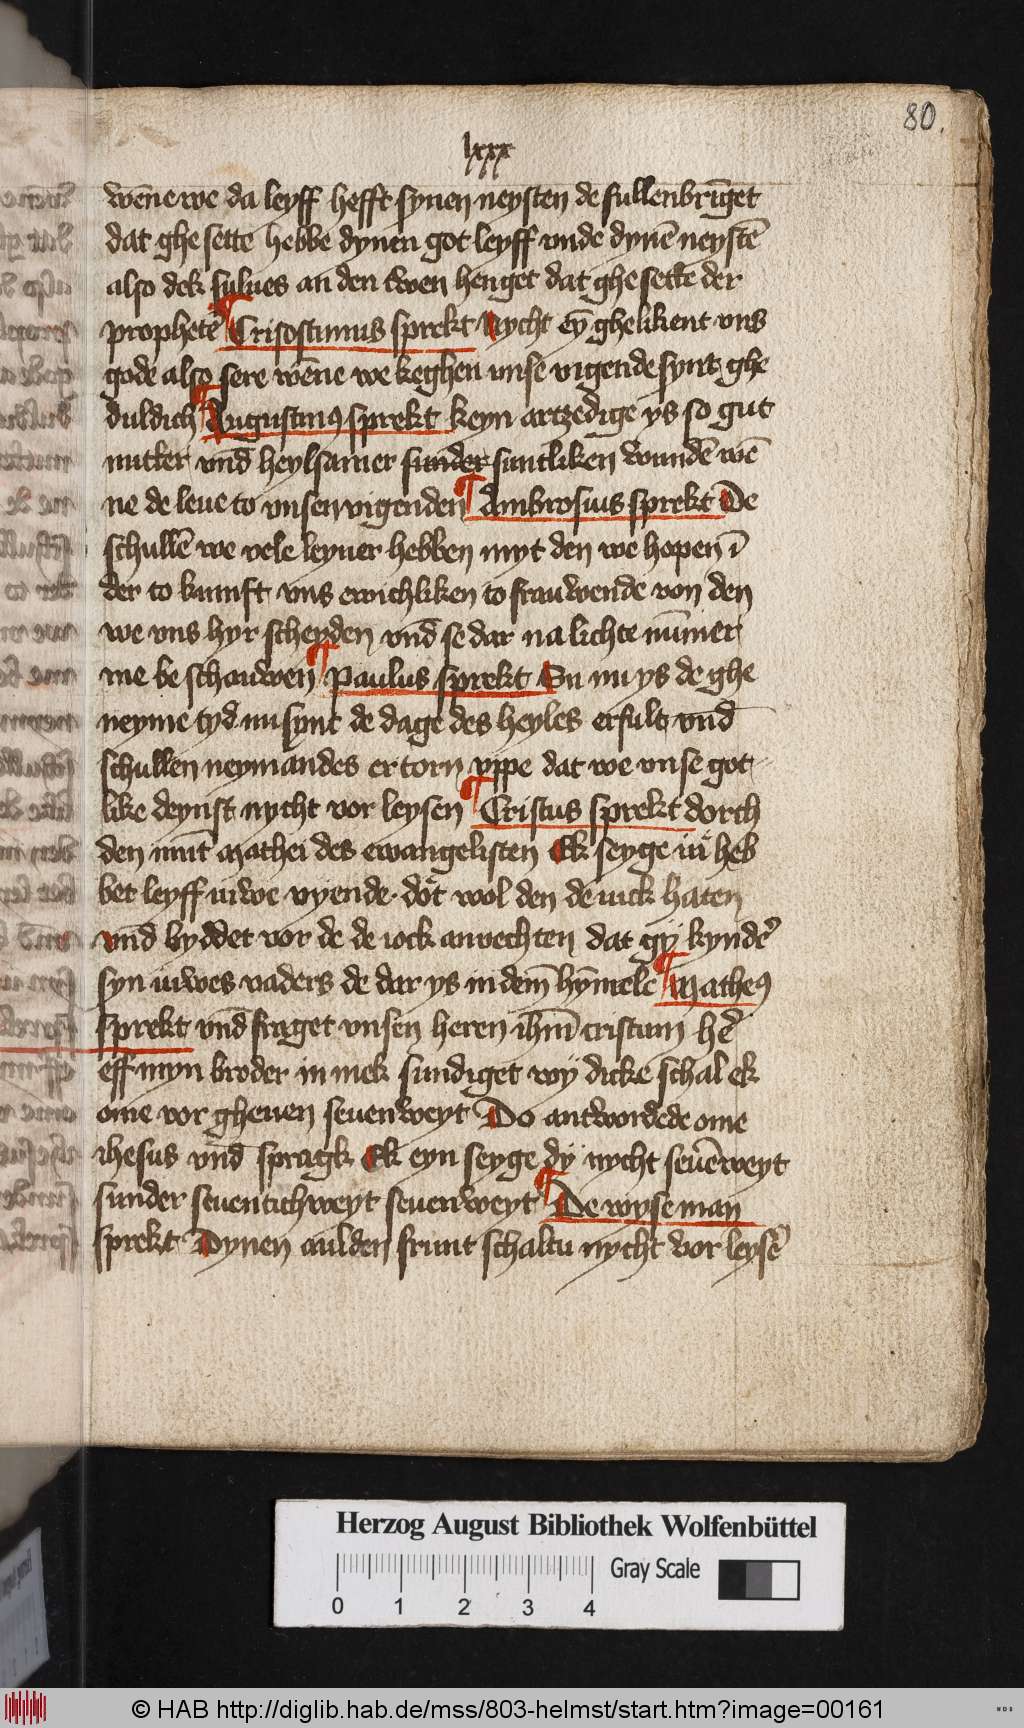 80.
lxxx
wēne we da leyff hefft synen neysten de fullenbrīget
dat ghe sette hebbe dynen got leyff vnde dynē neystē
also dek sulues an den twen henget dat ghe sette der
prophetē ¶ Crisostimus sprekt Nycht eȳ ghelikent vns
gode also sere wēne we keghen vnse vigende synt ghe
duldich ¶ Augustinus sprekt keyn artzedige ys so gut
nutter vnd heylsamer sunder suntliken wundē wē
ne de leue to vnsen vigenden ¶ Ambrosius sprekt De
schullē we vele leyuer hebben myt den we hopen ī
der to kumft vns ewichliken to frauwende von den
we vns hyr scheyden vnd se dar na lichte nūmer
me be schauwen ¶ Paulus sprekt Su nu ys de ghe
neyme tyd nu synt de dage des heyles erfult vnd
schullen neymandes ertorn vppe dat we vnse got
like deynst nycht vor leysen ¶ Cristus sprekt dorch
den mūt Mathei des ewangelisten Ek seyge iu heb
bet leyff iuwe vyende dot wol den de iuck haten
vnd byddet vor de de iock anvechten dat gy kyndē
syn iuwes vaders de dar ys in dem hȳmele ¶ Matheus
sprekt vnd fraget vnsen heren ihm̄ cristum he
eff myn broder in mek sundiget wy dicke schal ek
ome vor gheuen seuenweyt Do antwordede ome
ihesus vnd spragk Ek eyn seyge dy nycht seuēweyt
sunder seuentichweyt seuenweyt ¶ De wyse man
sprekt Dynen aulden frunt schaltu nycht vorleysē
Herzog August Bibliothek Wolfenbüttel
Gray Scale
0 1 2 3 4
© HAB http://diglib.hab.de/mss/803-helmst/start.htm?image=00161